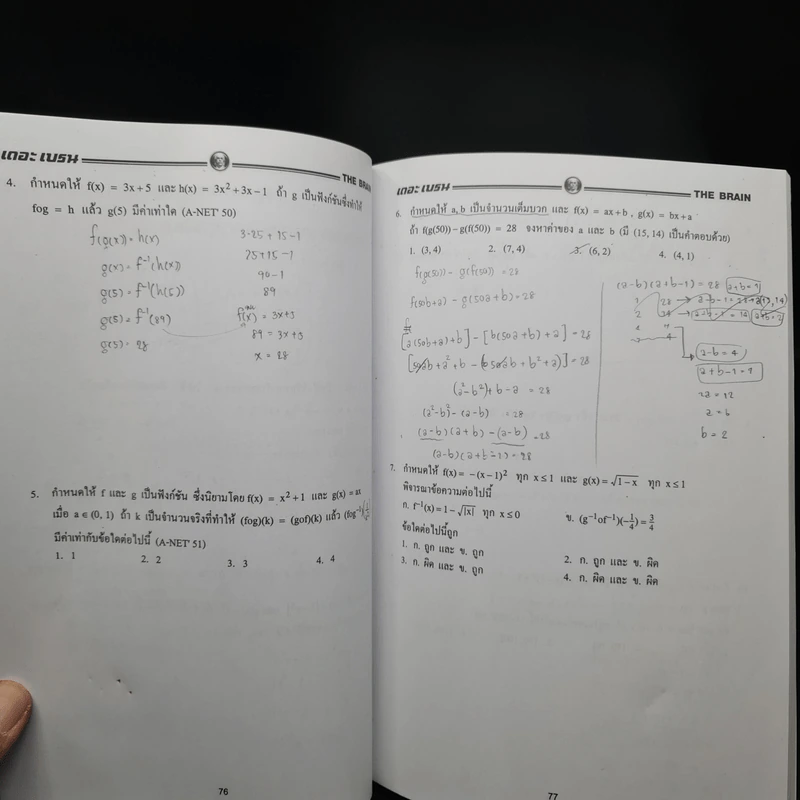 เดอะเบรน
THE BRAIN
4. กำหนดให้ f(x) = 3x+5 และ h(x) = 3x²+3x−1 ถ้า g เป็นฟังก์ชันซึ่งทำให้
fog = h แล้ว g(5) มีค่าเท่าใด (A-NET' 50)
f(g(x)) = h(x)
g(x) = f⁻¹(h(x))
g(5) = f⁻¹(h(5))
g(5) = f⁻¹(89)
g(5) = 28
3·25 + 15 −1
75+15−1
90−1
89
f(x) = 3x+5
89 = 3x+5
x = 28
5. กำหนดให้ f และ g เป็นฟังก์ชัน ซึ่งนิยามโดย f(x) = x²+1 และ g(x) = ax
เมื่อ a ∈ (0, 1) ถ้า k เป็นจำนวนจริงที่ทำให้ (fog)(k) = (gof)(k) แล้ว
มีค่าเท่ากับข้อใดต่อไปนี้ (A-NET' 51)
1. 1 2. 2 3. 3 4. 4
76
เดอะเบรน
THE BRAIN
6. กำหนดให้ a, b เป็นจำนวนเต็มบวก และ f(x) = ax+b , g(x) = bx+a
ถ้า f(g(50))−g(f(50)) = 28 จงหาค่าของ a และ b (มี (15, 14) เป็นคำตอบด้วย)
1. (3, 4) 2. (7, 4) 3. (6, 2) 4. (4, 1)
f(g(50)) − g(f(50)) = 28
f(50b+a) − g(50a+b) = 28
[a(50b+a)+b] − [b(50a+b)+a] = 28
[50ab+a²+b − (50ab+b²+a)] = 28
(a²−b²)+b−a = 28
(a²−b²)−(a−b) = 28
(a−b)(a+b) −(a−b) = 28
(a−b)(a+b−1) = 28
(a−b)(a+b−1) = 28
1 28
2 14
4 7
a−b = 4
a+b−1 = 7
2a = 12
a = 6
b = 2
7. กำหนดให้ f(x) = −(x−1)² ทุก x ≤ 1 และ g(x) = √(1−x) ทุก x ≤ 1
พิจารณาข้อความต่อไปนี้
ก. f⁻¹(x) = 1−√|x| ทุก x ≤ 0 ข. (g⁻¹of⁻¹)(−1/4) = 3/4
ข้อใดต่อไปนี้ถูก
1. ก. ถูก และ ข. ถูก 2. ก. ถูก และ ข. ผิด
3. ก. ผิด และ ข. ถูก 4. ก. ผิด และ ข. ผิด
77